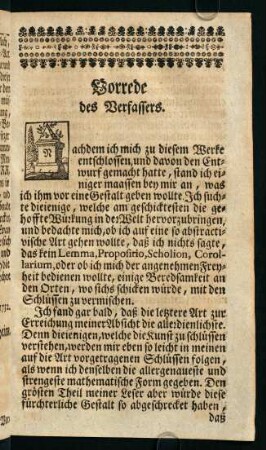 Vorrede
des Verfassers.
Nachdem ich mich zu diesem Werke
entschlossen, und davon den Ent-
wurf gemacht hatte, stand ich ei-
niger maassen bey mir an, was
ich ihm vor eine Gestalt geben wollte. Ich such-
te diejenige, welche am geschicktesten die ge-
hoffte Würkung in der Welt hervorzubringen,
und bedachte mich, ob ich auf eine so abstracti-
vische Art gehen wollte, daß ich nichts sagte,
das kein Lemma, Propositio, Scholion, Corol-
larium, oder ob ich mich der angenehmen Frey-
heit bedienen wollte, einige Beredsamkeit an
den Orten, wo sichs schicken würde, mit den
Schlüssen zu vermischen.
Ich fand gar bald, daß die letztere Art zur
Erreichung meiner Absicht die allerdienlichste.
Denn diejenigen, welche die Kunst zu schlüssen
verstehen, werden mir eben so leicht in meinen
auf die Art vorgetragenen Schlüssen folgen,
als wenn ich denselben die allergenaueste und
strengeste mathematische Form gegeben. Den
grösten Theil meiner Leser aber würde diese
fürchterliche Gestalt so abgeschrecket haben,
daß